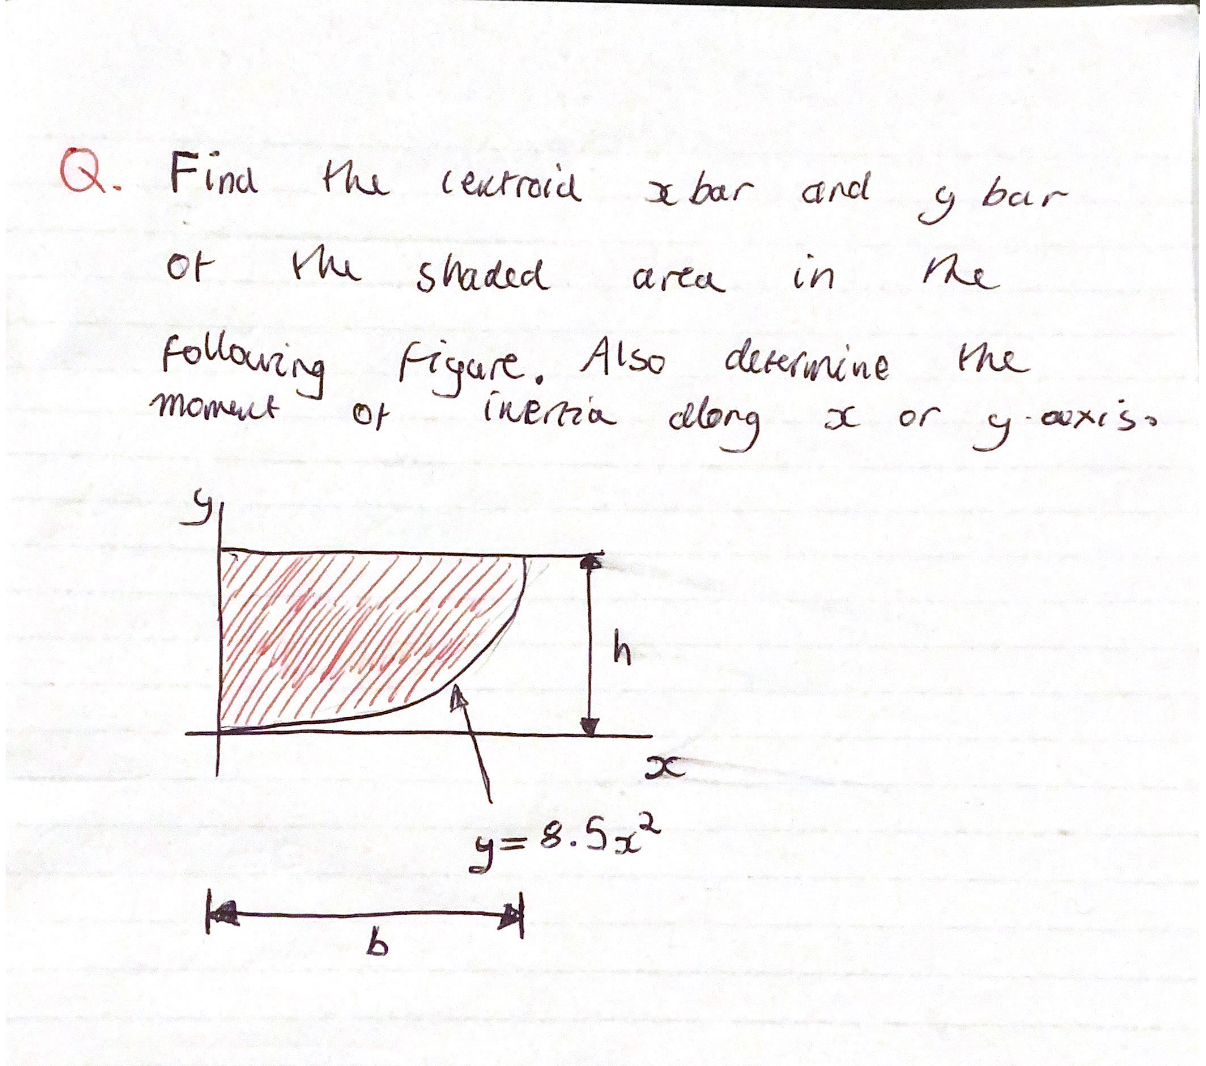 Q. Find the centroid x bar and y bar
of the shaded area in the
following figure. Also determine the
moment of inertia along x or y-axis.
y
h
x
y = 8.5x²
b